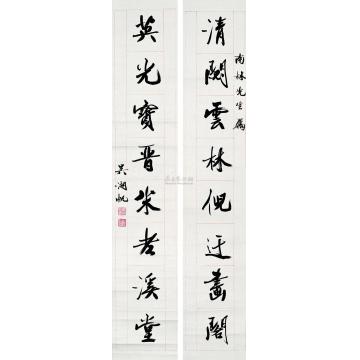 南林先生屬
清閟雲林倪迂畫閣
英光寶晋米老溪堂
吴湖帆